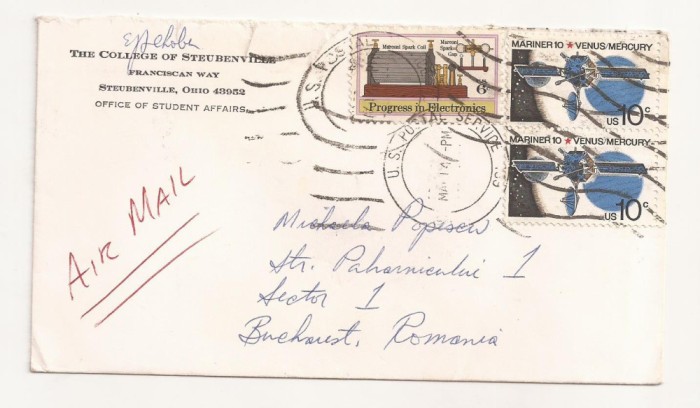 THE COLLEGE OF STEUBENVILLE
FRANCISCAN WAY
STEUBENVILLE, OHIO 43952
OFFICE OF STUDENT AFFAIRS
Marconi Spark Coil
Marconi Spark Gap
6c
Progress in Electronics
MARINER 10 ★ VENUS/MERCURY
US 10c
MARINER 10 ★ VENUS/MERCURY
US 10c
U.S. POSTAL
U.S. POSTAL SERVICE
PM
AIR MAIL
Michaela Popescu
Str. Paharnicului 1
Sector 1
Bucharest, Romania